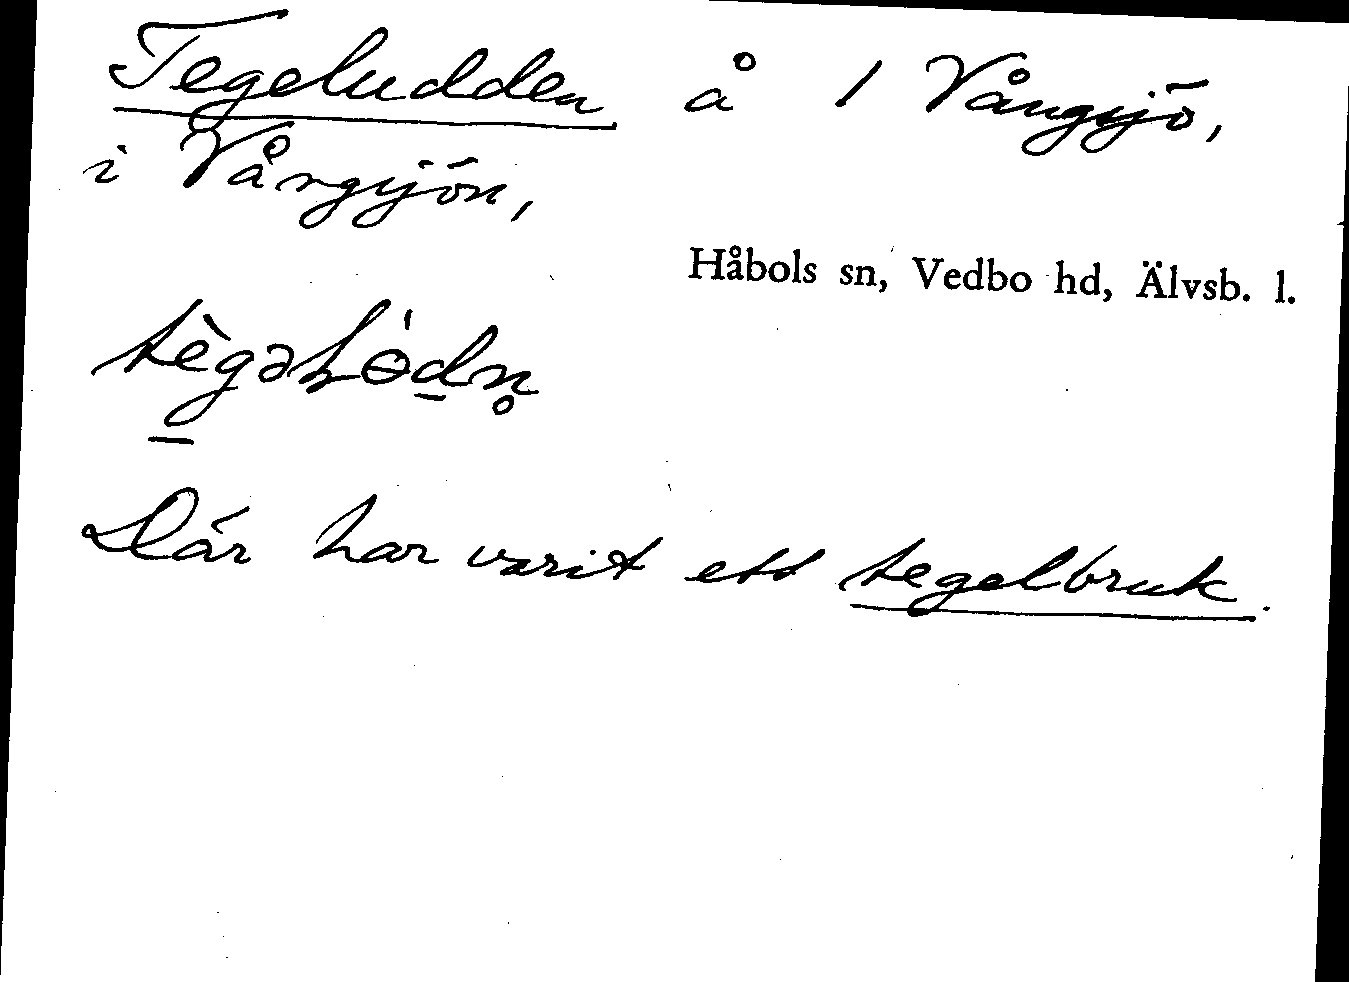 Tegeludden å 1 Vångsjö,
i Vångsjön,
Håbols sn, Vedbo hd, Älvsb. l.
Där har varit ett tegelbruk.